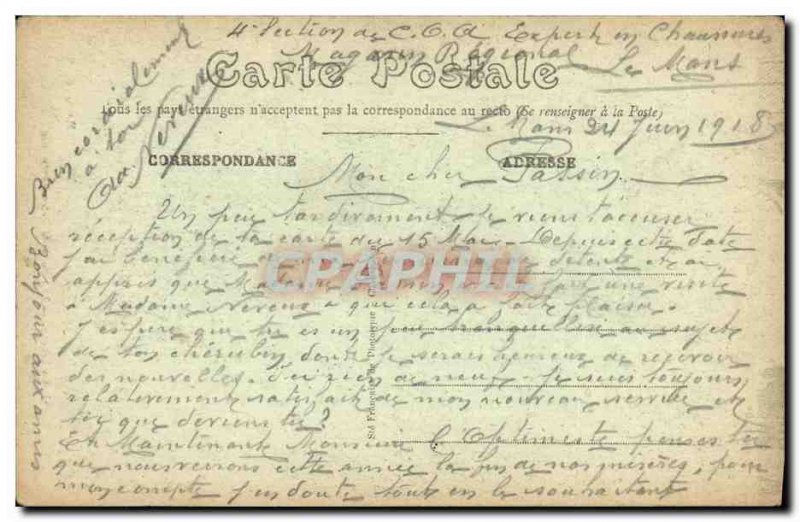 4e Section de C.O.A Expert en Chaussures
Magasin Régional Le Mans
Carte Postale
Tous les pays étrangers n'acceptent pas la correspondance au recto (Se renseigner à la Poste)
Le Mans 24 Juin 1918
CORRESPONDANCE
ADRESSE
Mon cher Passin
Un peu tardivement je viens t'accuser
réception de ta carte du 15 Mai. Depuis cette date
j'ai bénéficié de détente et ai
appris que Madame une visite
à Madame Neveux à que cela a fait plaisir.
J'espère que tu es un peu tranquillisé au sujet
de ton chérubin dont je serais heureux de recevoir
des nouvelles. Ici rien de neuf. Je suis toujours
relativement satisfait de mon nouveau service et
toi que deviens tu?
Et Maintenant Monsieur l'Optimiste penses tu
que nous verrons cette année la fin de nos misères, pour
mon compte j'en doute tout en le souhaitant
Bien cordialement
à toi
Neveux
Bonjour aux amis
CPAPHIL
Sté Française de Phototypie